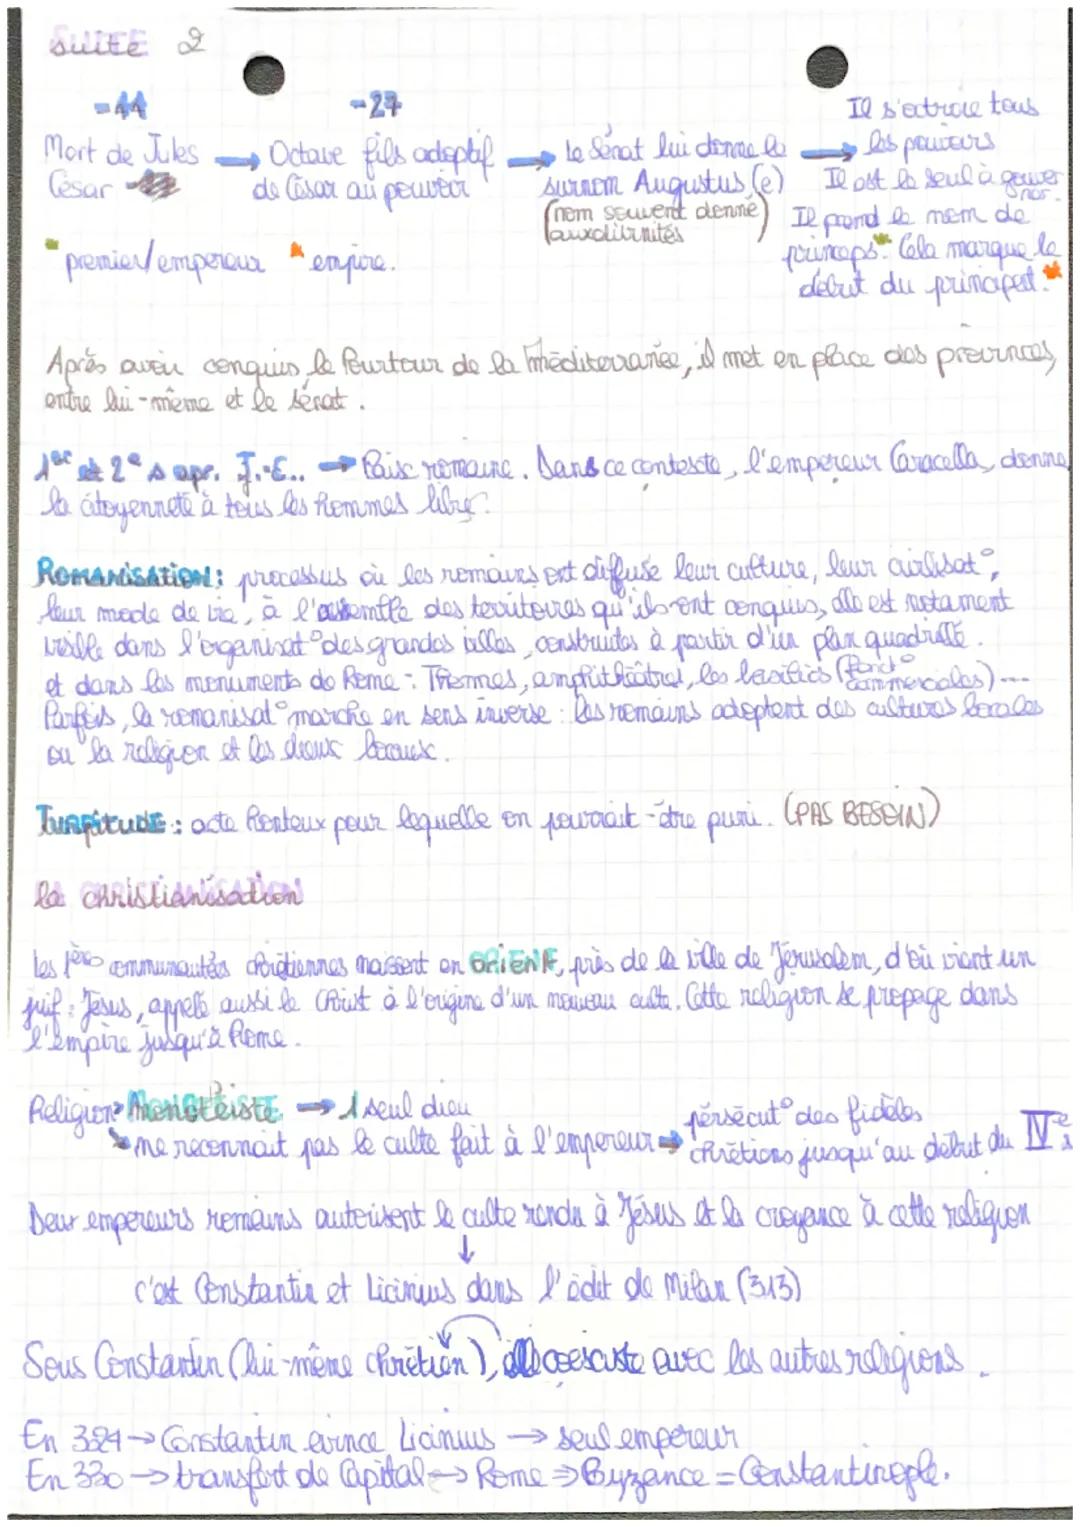 Suite 2
-44
Mort de Jules
César
→ -27
Octave fils adoptif
de César au pouvoir
→ le Sénat lui donne le
surnom Augustus (e)
(nom souvent donné
aux divinités)
→ Il s'octroie tous
les pouvoirs
Il est le seul à gouver
ner.
Il prend le nom de
princeps* Cela marque le
début du principat.*
* premier/empereur * empire.
Après avoir conquis le Pourtour de la méditerranée, il met en place des provinces,
entre lui-même et le sénat.
1er et 2e s apr. J.-C.. → Paix romaine. Dans ce contexte, l'empereur Caracalla, donne
la citoyenneté à tous les hommes libre.
ROMANISATION: processus où les romains ont diffusé leur culture, leur civilisat°,
leur mode de vie, à l'ensemble des territoires qu'ils ont conquis, elle est notament
visible dans l'organisat° des grandes villes, construites à partir d'un plan quadrillé.
et dans les monuments de Rome: Thermes, amphithéâtres, les basilics (fonct° commerciales)...
Parfois, la romanisat° marche en sens inverse: les romains adoptent des cultures locales
ou la religion et les dieux locaux.
Turpitude: acte honteux pour lequelle on pourrait être puni. (PAS BESOIN)
la christianisation
les 1ères communautés chrétiennes naissent en orient, près de la ville de Jérusalem, d'où vient un
juif: Jésus, appelé aussi le Christ à l'origine d'un nouveau culte. Cette religion se propage dans
l'empire jusqu'à Rome.
Religion → Monotéiste → 1 seul dieu
→ ne reconnait pas le culte fait à l'empereur → persécut° des fidèles
chrétiens jusqu'au début du IVe s
Deux empereurs romains autorisent le culte rendu à Jésus et la croyance à cette religion
↓
c'est Constantin et Licinius dans l'édit de Milan (313)
Sous Constantin (lui-même chrétien), elle coexiste avec les autres religions.
En 324 → Constantin évince Licinius → seul empereur
En 330 → transfert de Capital → Rome ⇒ Byzance = Constantinople.